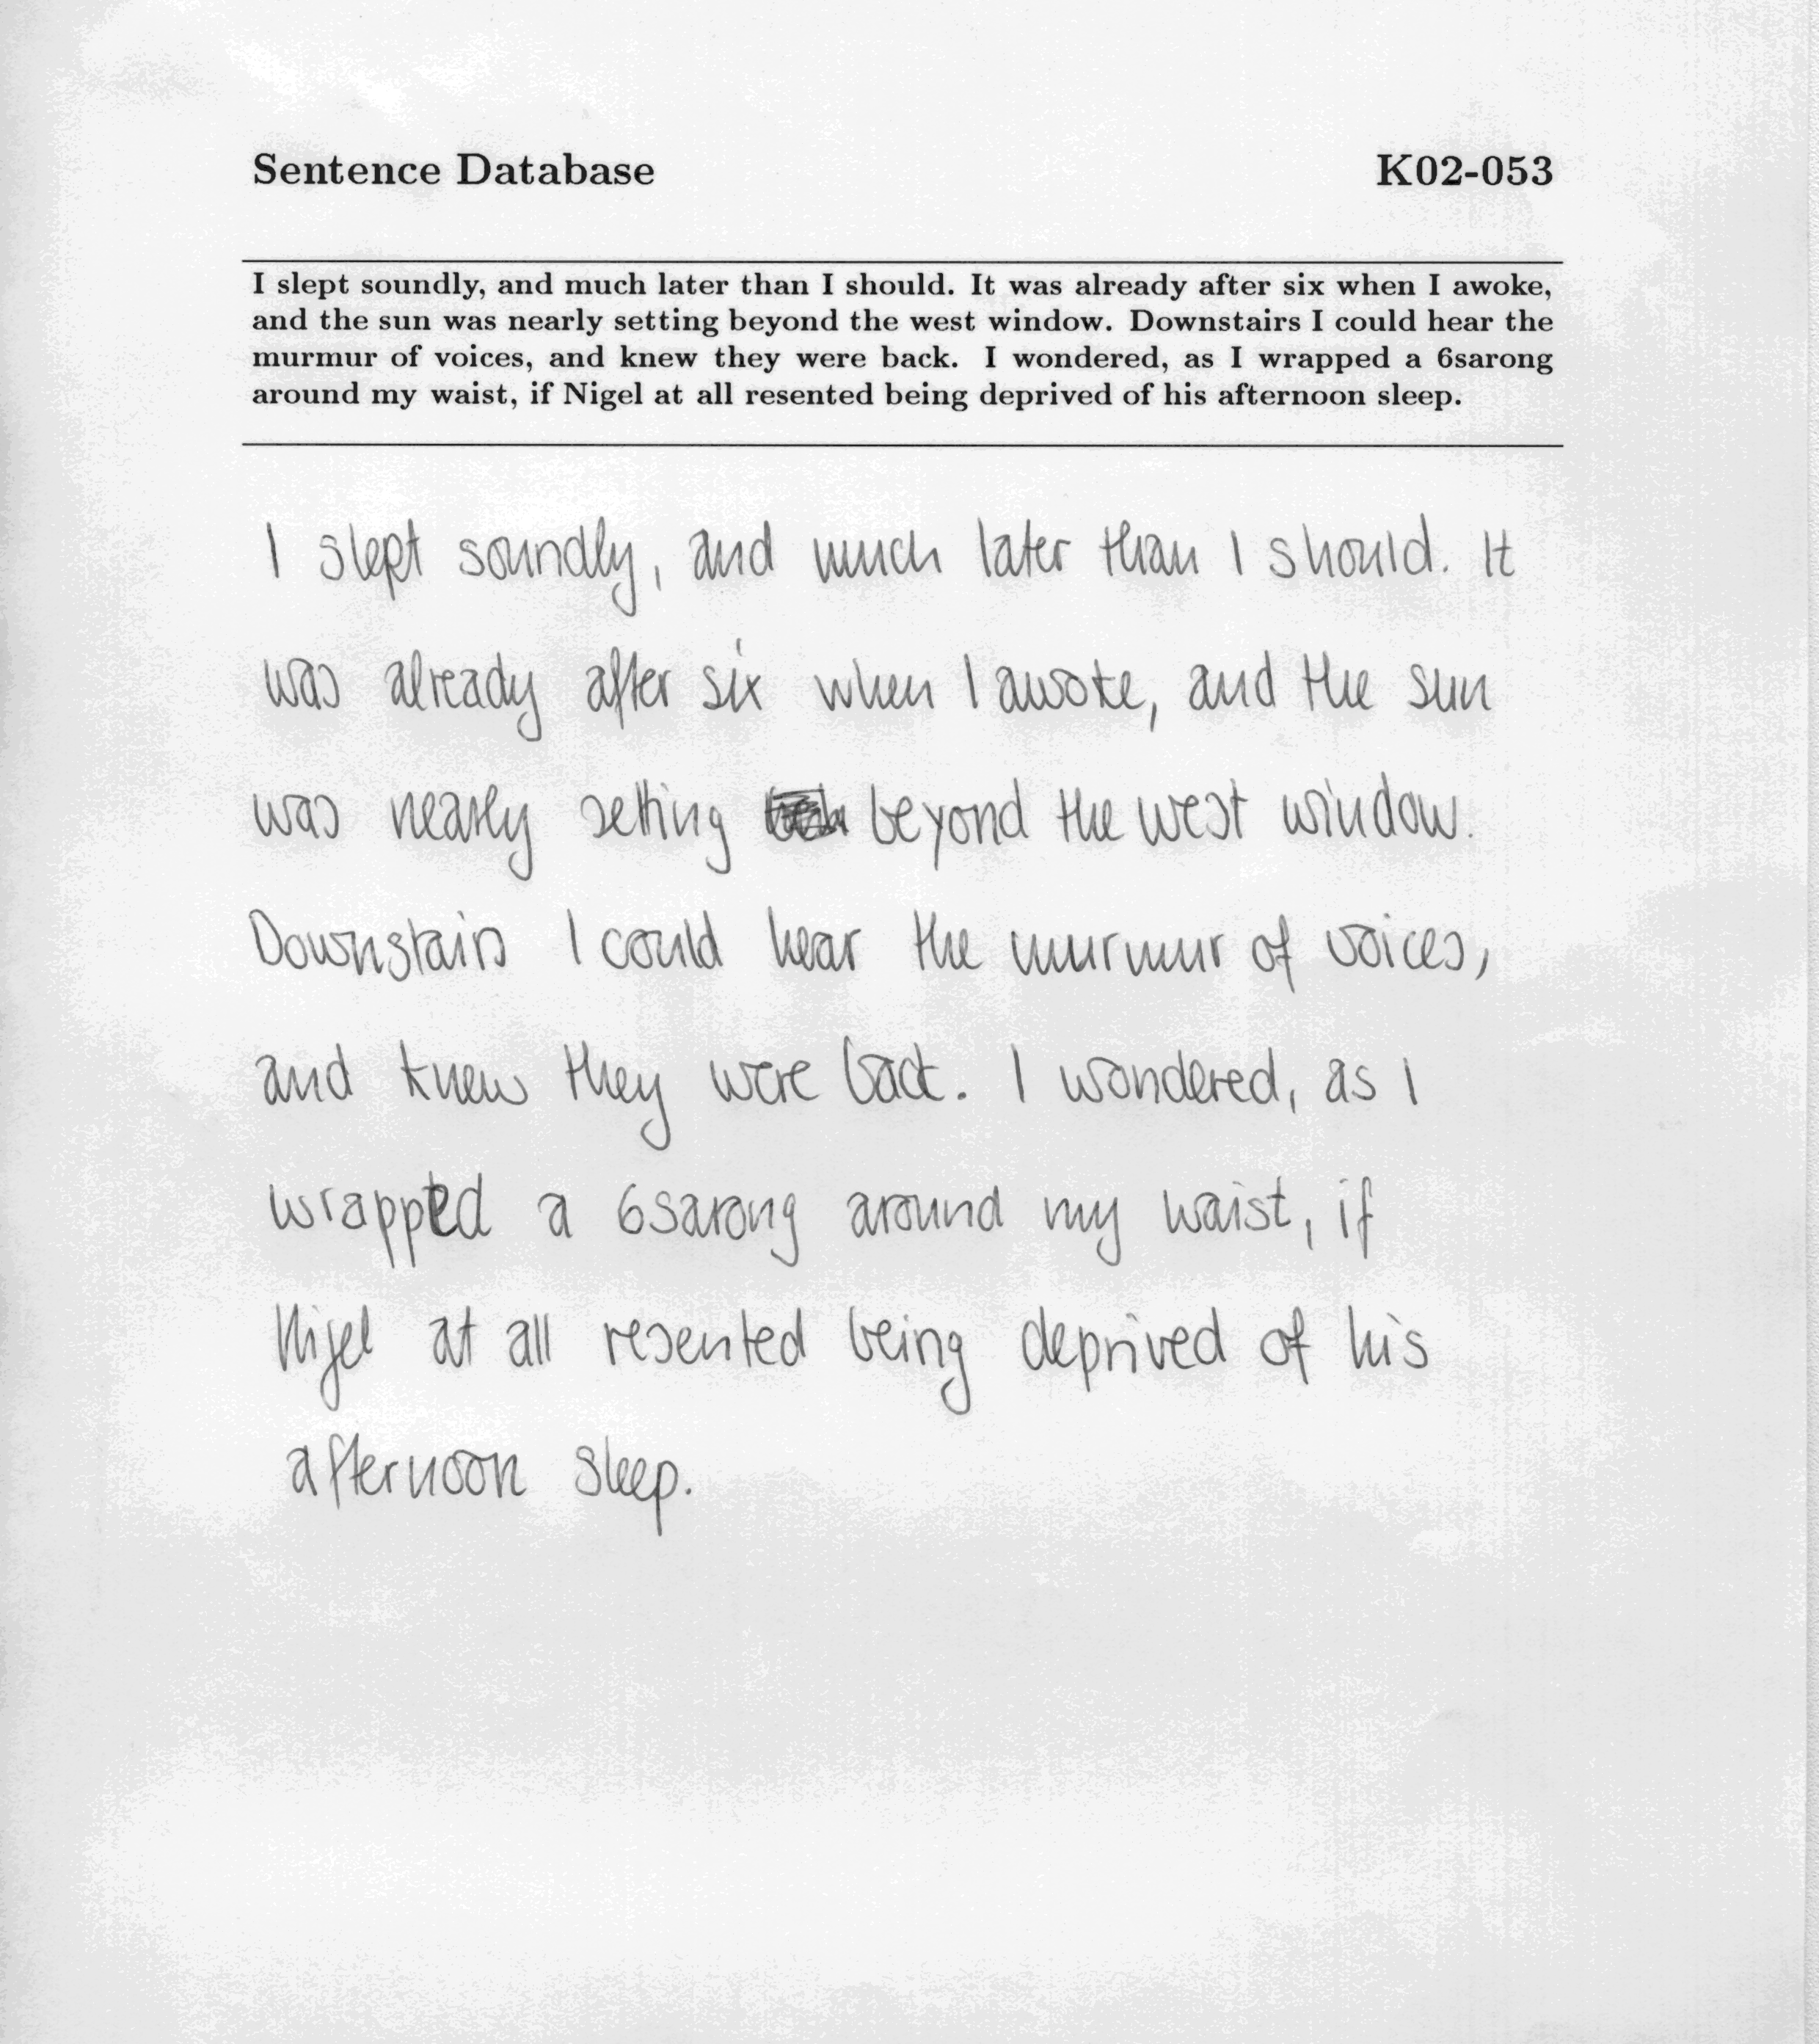 Sentence Database K02-053
I slept soundly, and much later than I should. It was already after six when I awoke,
and the sun was nearly setting beyond the west window. Downstairs I could hear the
murmur of voices, and knew they were back. I wondered, as I wrapped a 6sarong
around my waist, if Nigel at all resented being deprived of his afternoon sleep.
I slept soundly, and much later than I should. It
was already after six when I awoke, and the sun
was nearly setting beyond the west window.
Downstairs I could hear the murmur of voices,
and knew they were back. I wondered, as I
wrapped a 6sarong around my waist, if
Nigel at all resented being deprived of his
afternoon sleep.